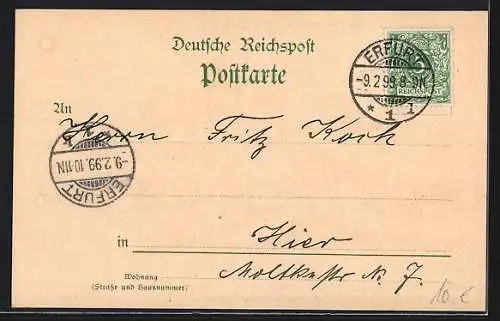 Deutsche Reichspost
Postkarte
ERFURT
-9.2.99.8-9N
* 1 1
5
REICHSPOST
An
Herrn Fritz Koch
-9.2.99.10-11N
ERFURT
in Hier
Wohnung
(Straße und Hausnummer)
Moltkestr N. 7.
10 €